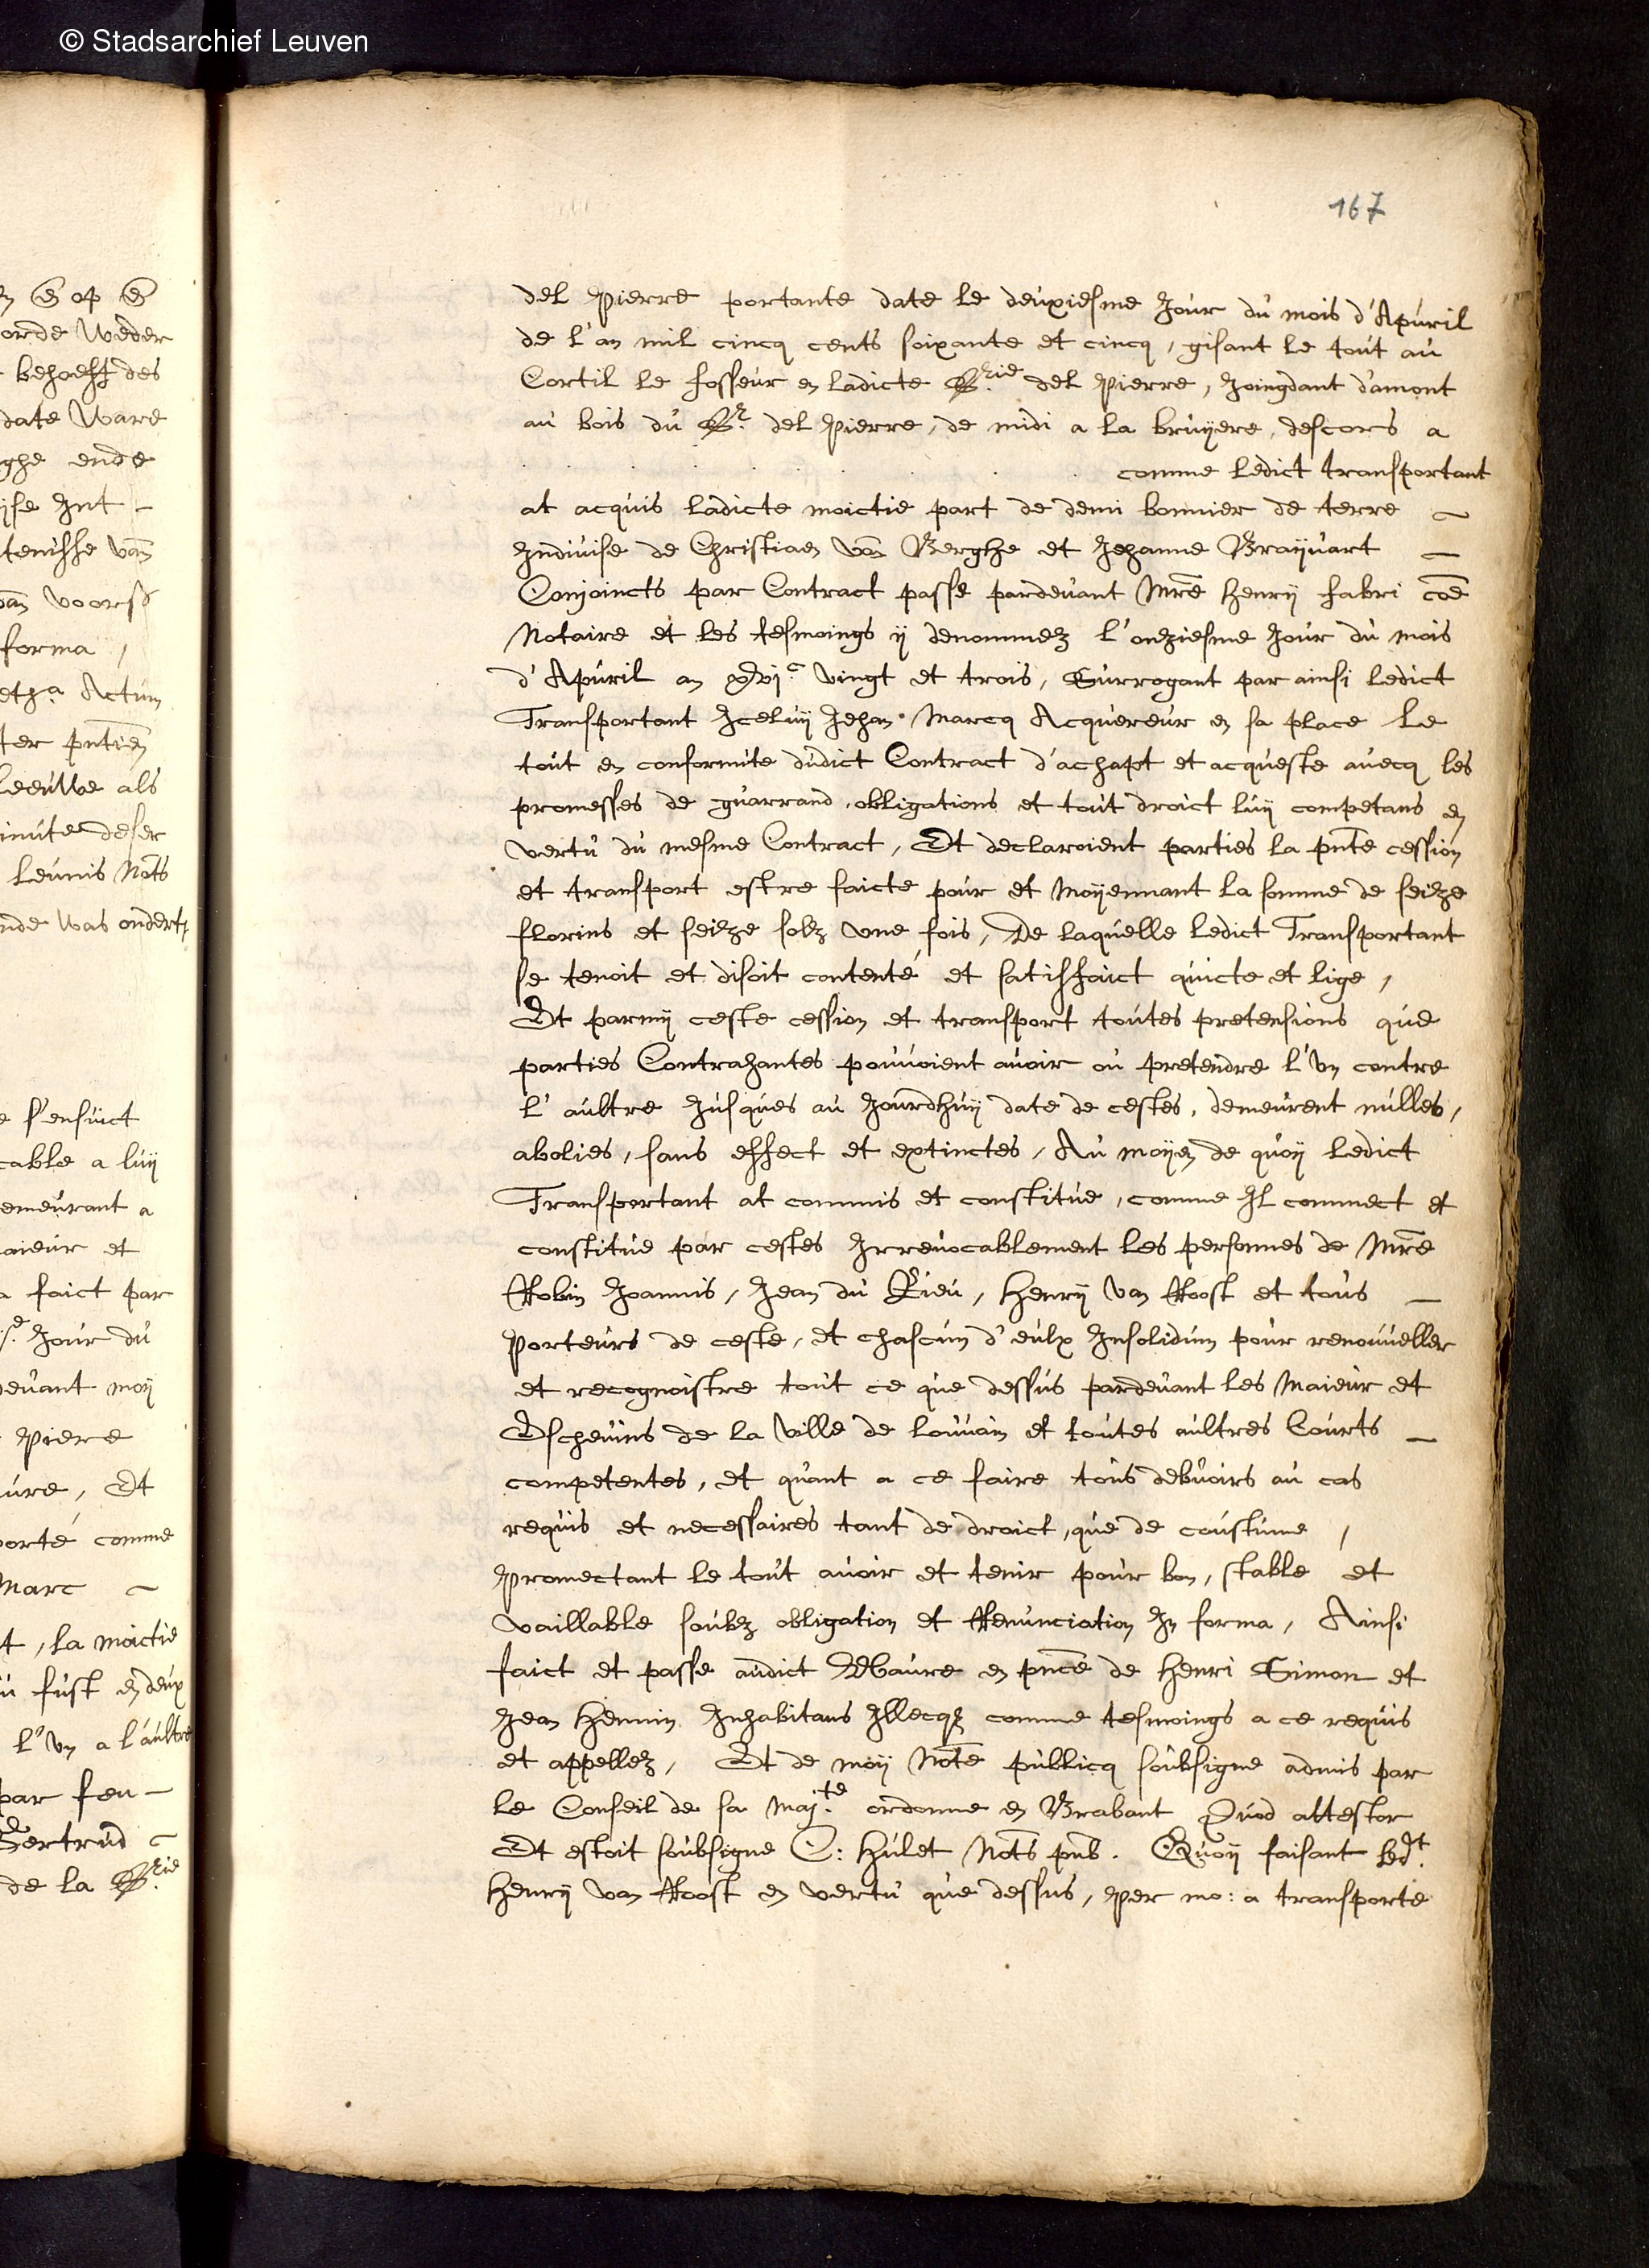 © Stadsarchief Leuven
167
orde weder
behoeff des
date ware
ghe ende
voors
forma
Actum
als
Nots
nde was
s'ensuict
cable a luij
emeurant a
aieur et
faict par
Jour du
devant moij
Piere
ure, Et
porté comme
Marc
t, la moictie
u fust en deux
L'un a l'aultre
par feu
Gertrud
de la Srie
del Pierre portante date le deuxiesme Jour du mois d'Apuril
de l'an mil cincq cents soixante et cincq, gisant le tout au
Cortil le fosseur en ladicte Srie del Pierre, Joingdant d'amont
au bois du Sr. del Pierre, de midi a la bruijere, descors a
. . . . . . comme ledict transportant
at acquis ladicte moictie part de demi bonnier de terre
Indivise de Christiaen van Berghe et Jehanne Braijvart
Conjoincts par Contract passe pardevant Mre Henrij fabri coe
Notaire et les tesmoings ij denommez l'onziesme Jour du mois
d'Apuril an xvjc vingt et trois, Surrogant par ainsi ledict
Transportant Iceluij Jehan Marcq Acquereur en sa place Le
tout en conformite dudict Contract d'achapt et acqueste avecq les
promesses de guarrand, obligations et tout droict luij competans en
vertu du mesme Contract, Et declaroient parties la pnte cession
et transport estre faicte pour et moijennant la somme de seize
florins et seize solz une fois, De laquelle ledict Transportant
se tenoit et disoit contenté et satisfaict quicte et lige,
Et parmij ceste cession et transport toutes pretensions que
parties Contrahantes pouvoient avoir ou pretendre l'un contre
l'aultre Jusques au Jourdhuij date de cestes, demeurent nulles,
abolies, sans effect et extinctes, Au moijen de quoij ledict
Transportant at commis et constitue, comme Il commect et
constitue par cestes Irrevocablement les personnes de Mre
Robin Joannis, Jean du Rieu, Henrij van Roost et tous
Porteurs de ceste, et chascun d'eulx Insolidum pour renouveller
et recognoistre tout ce que dessus pardevant les Maieur et
Eschevins de la Ville de Louvain et toutes aultres Courts
competentes, et quant a ce faire tous debvoirs au cas
requis et necessaires tant de droict, que de coustume,
Promectant le tout avoir et tenir pour bon, stable et
vaillable soubz obligation et Renunciation In forma, Ainsi
faict et passe audict Wavre en pnce de Henri Simon et
Jean Hennin Inhabitans Illecq comme tesmoings a ce requis
et appellez, Et de moij Note publicq soubsigne admis par
le Conseil de sa Maj.te ordonne en Brabant Quod attestor
Et estoit soubsigne C: Hulet Nots pub. Quoij faisant led.t
Henrij van Roost en vertu que dessus, per mo: a transporte